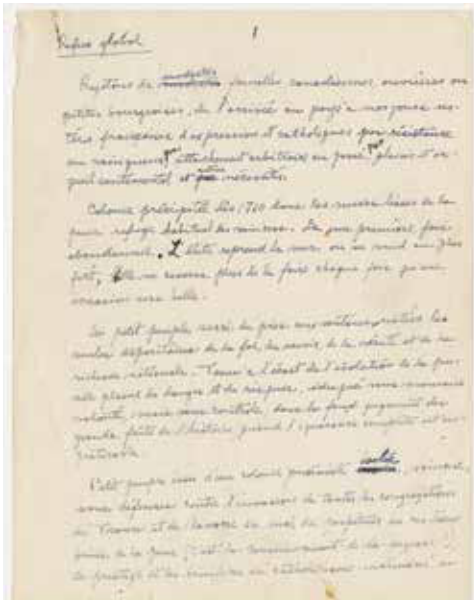 Refus global
1
Rejetons de modestes familles canadiennes, ouvrières ou
petites bourgeoises, de l'arrivée au pays à nos jours res-
tées françaises d'expression et catholiques par résistance
au vainqueur, par attachement arbitraire au passé, par plaisir et or-
gueil sentimental et autres nécessités.
Colonie précipitée dès 1760 dans les murs lisses de la
peur, refuge habituel des vaincus. La une première fois
abandonnée. L'élite reprend la mer ou se vend au plus
fort, Elle ne manque plus de le faire chaque fois qu'une
occasion sera belle.
Un petit peuple serré de près aux soutanes restées les
seules dépositaires de la foi, du savoir, de la vérité et de la
richesse nationale. Tenu à l'écart de l'évolution de la pen-
sée pleine de dangers et de risques, éduqué sans mauvaise
volonté, mais sans contrôle, dans le faux jugement des
grands faits de l'histoire quand l'ignorance complète est im-
praticable.
Petit peuple issu d'une colonie janséniste isolée, vaincu,
sans défense contre l'invasion de toutes les congrégations
de France et de Navarre en mal de perpétuer en ces lieux